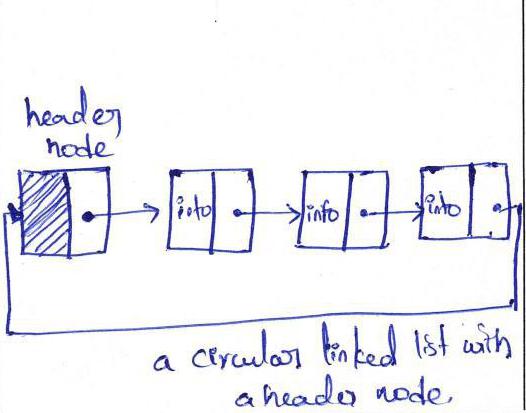 header
node
info
info
info
a circular linked list with
a header node